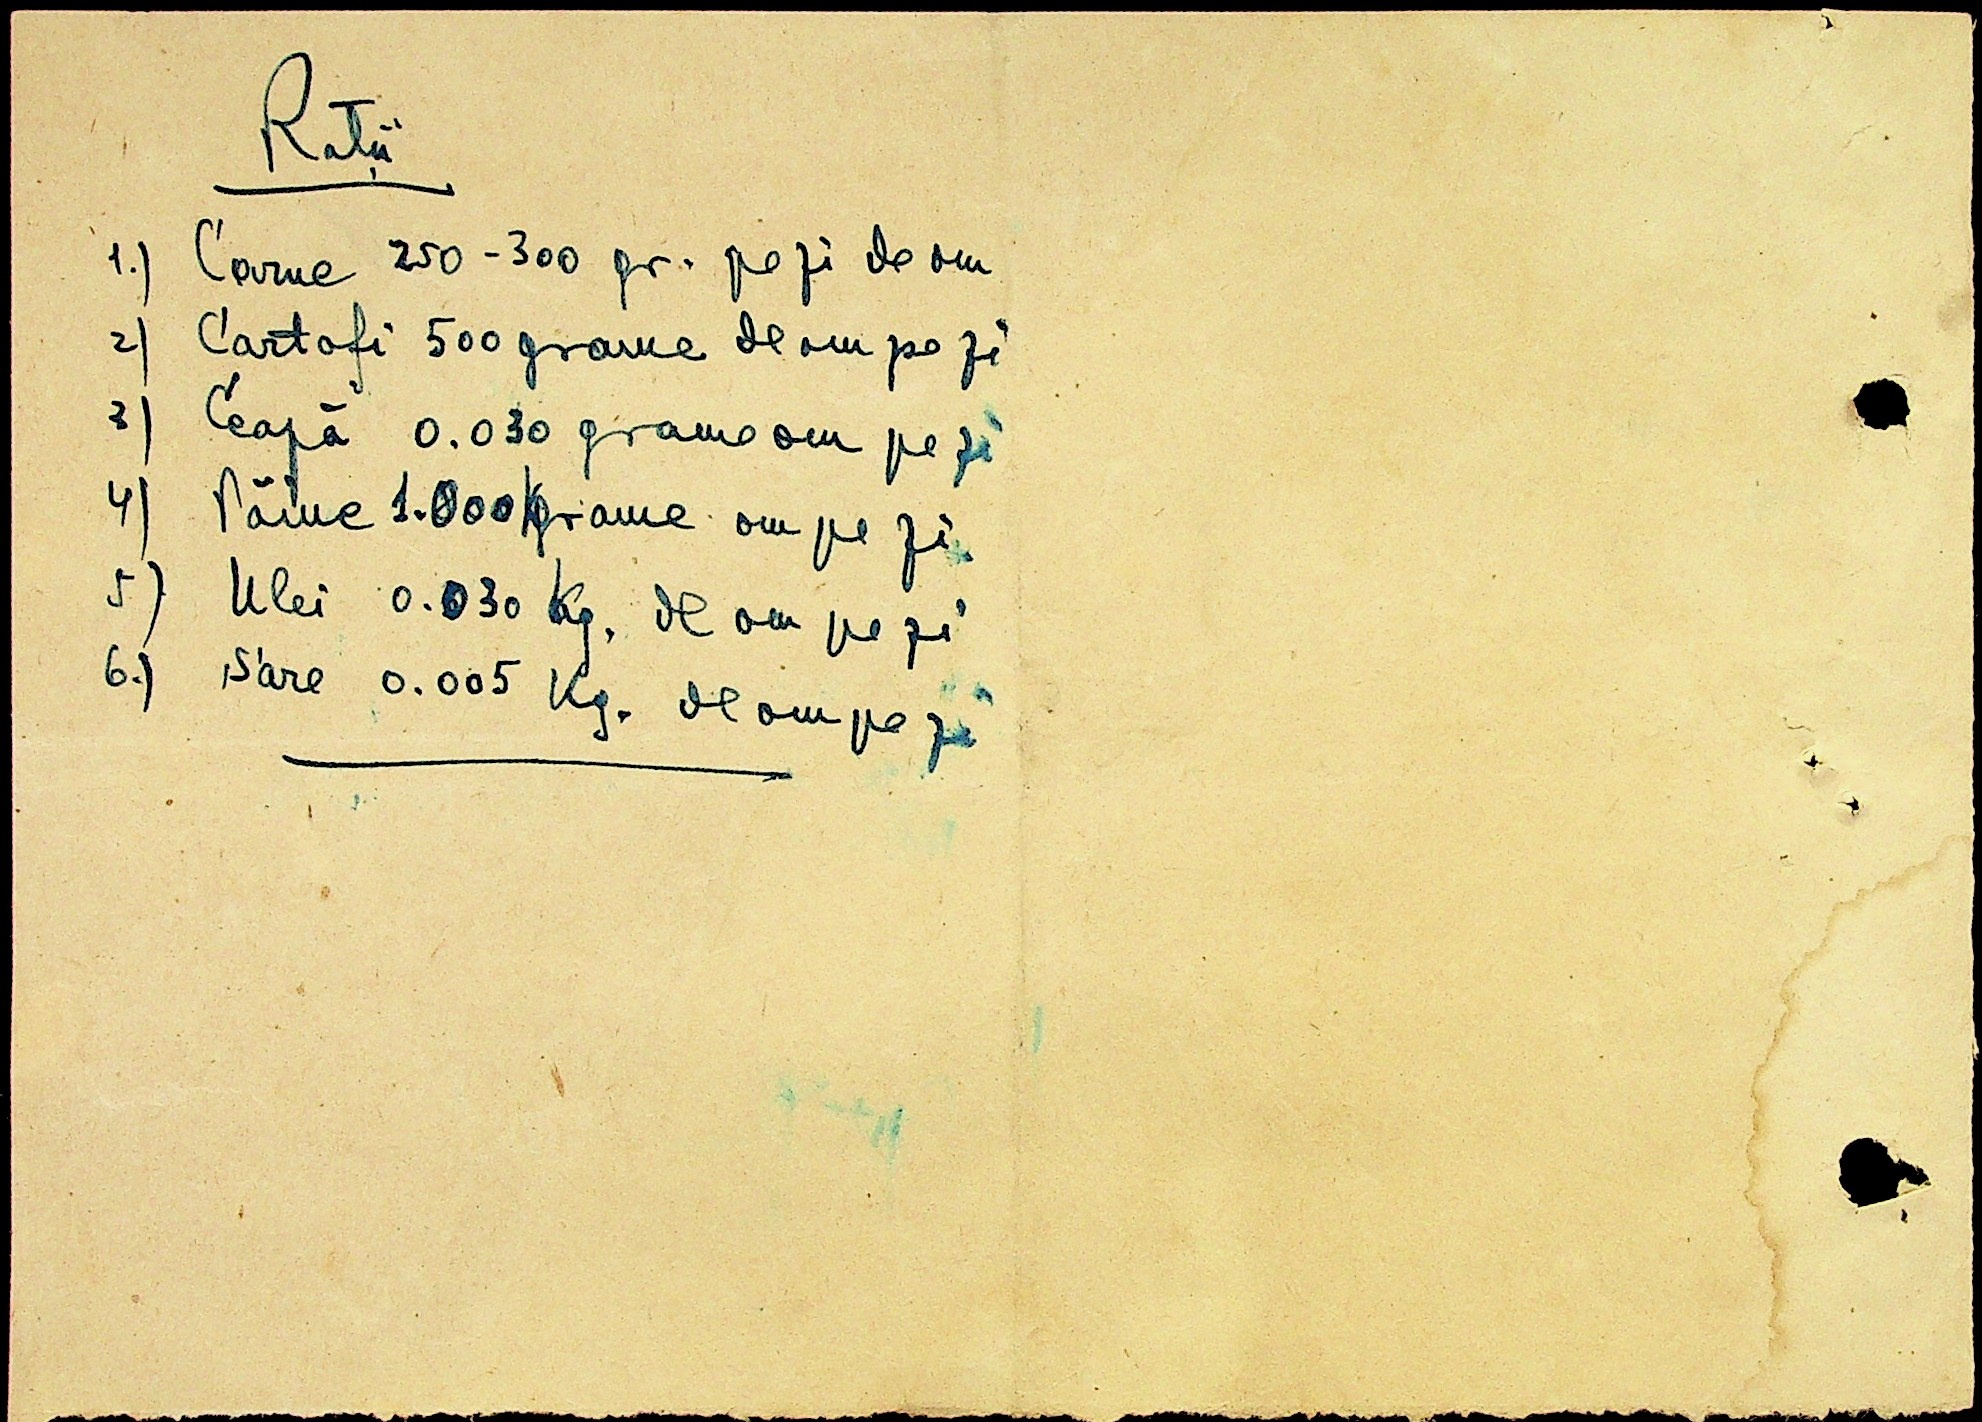 Rații
1.) Carne 250-300 gr. pe zi de om
2) Cartofi 500 grame de om pe zi
3) Ceapă 0.030 grame om pe zi
4) Pâine 1.000 grame om pe zi
5) Ulei 0.030 Kg. de om pe zi
6.) Sare 0.005 Kg. de om pe zi